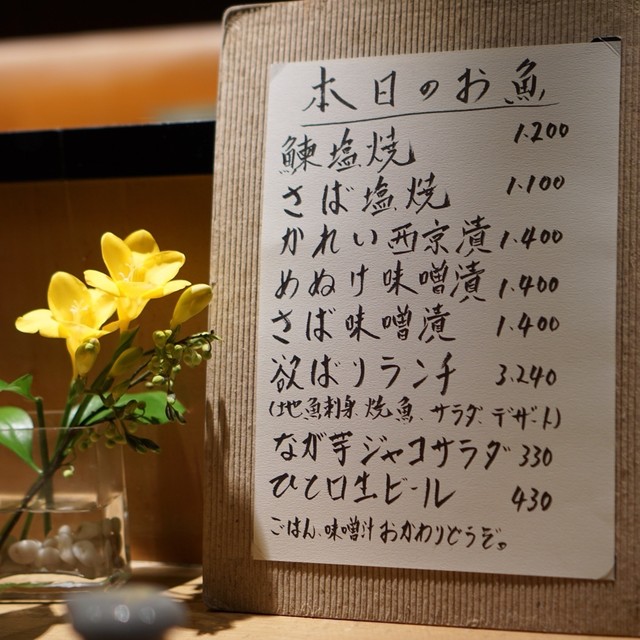 本日のお魚
鰊塩焼 1.200
さば塩焼 1.100
かれい西京漬 1.400
めぬけ味噌漬 1.400
さば味噌漬 1.400
欲ばりランチ 3.240
(地魚刺身、焼魚、サラダ、デザート)
なが芋ジャコサラダ 330
ひと口生ビール 430
ごはん、味噌汁おかわりどうぞ。